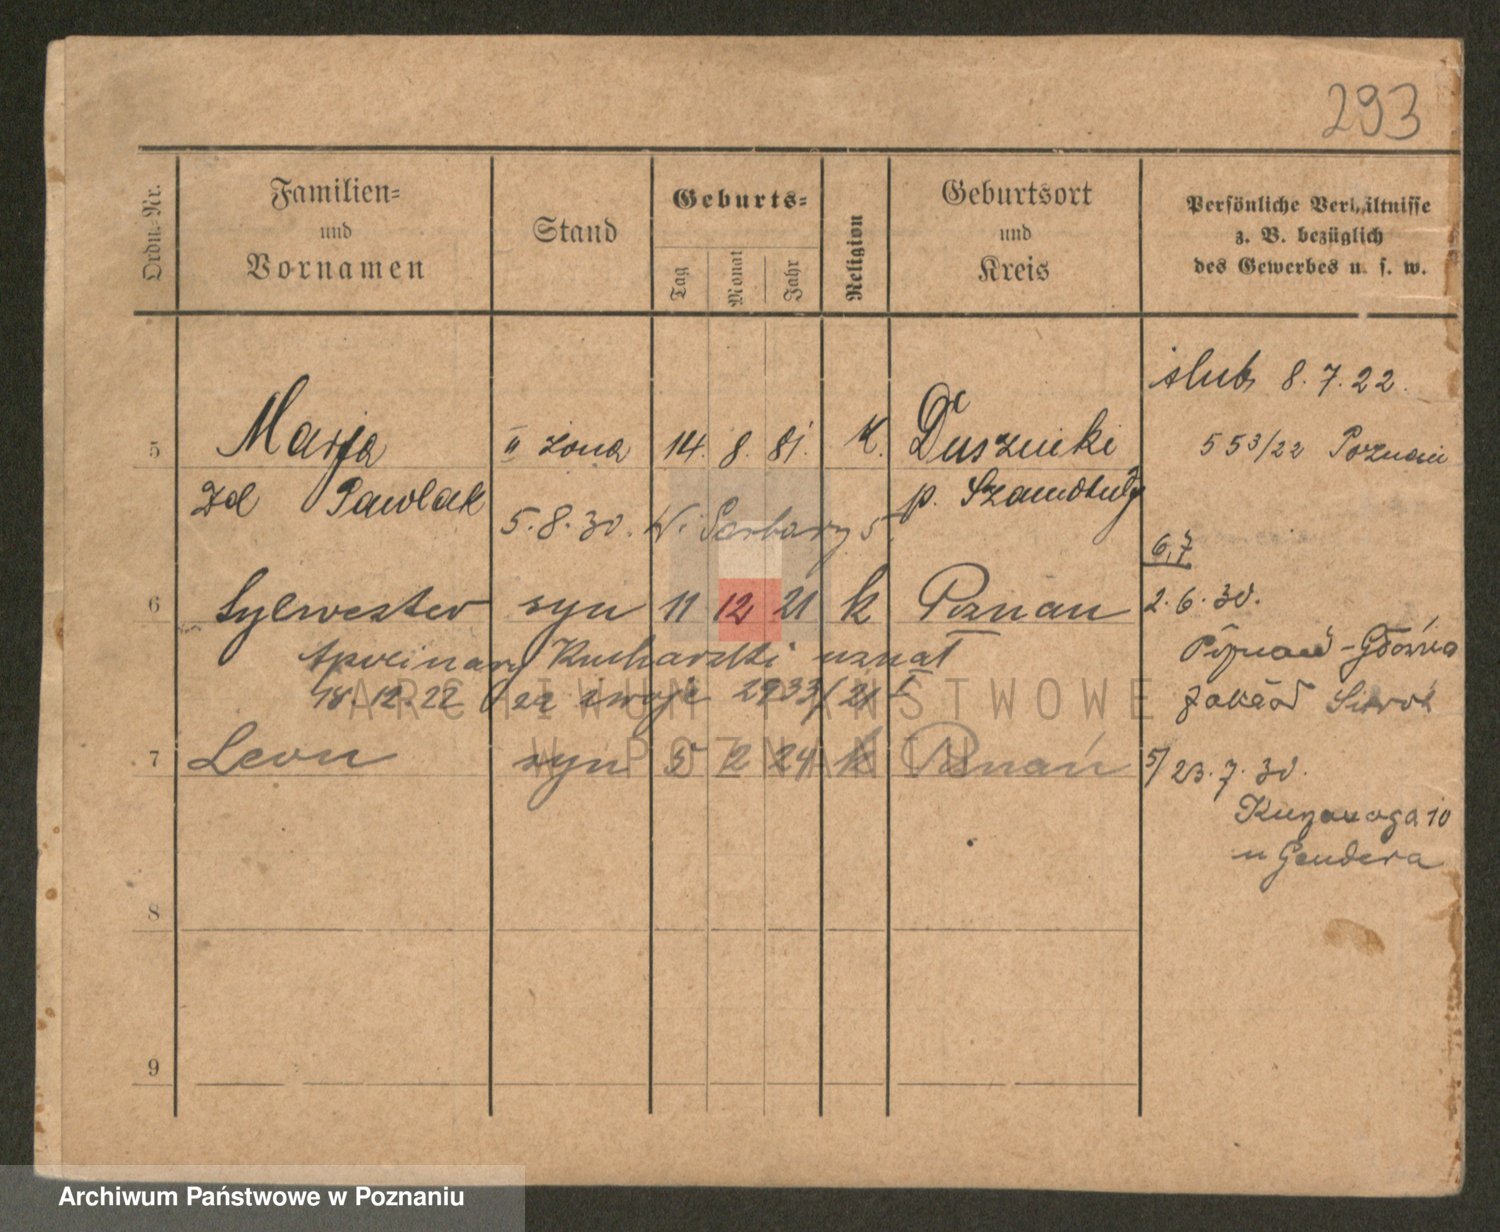 293
Ordn. Nr.
Familien-
und
Vornamen
Stand
Geburts-
Tag
Monat
Jahr
Religion
Geburtsort
und
Kreis
Persönliche Verhältnisse
z. B. bezüglich
des Gewerbes u. s. w.
ślub 8.7.22.
5 Marja II żona 14. 8. 81. K. Duszniki
553/22 Poznań
zd Pawlak p. Szamotuły
5.8.30. W. Garbary 5
6,7
6 Sylwester syn 11 12 21 k Poznań 2.6.30.
Apolinary Kucharski uznał
Poznań - Główna
18.12.22 za swoje 2933/21 I
Zakład Sierot
7 Leon syn 5 2 24 k Poznań 5/23.7.30.
10
u Gendera
8
9
ARCHIWUM PAŃSTWOWE
W POZNANIU
Archiwum Państwowe w Poznaniu